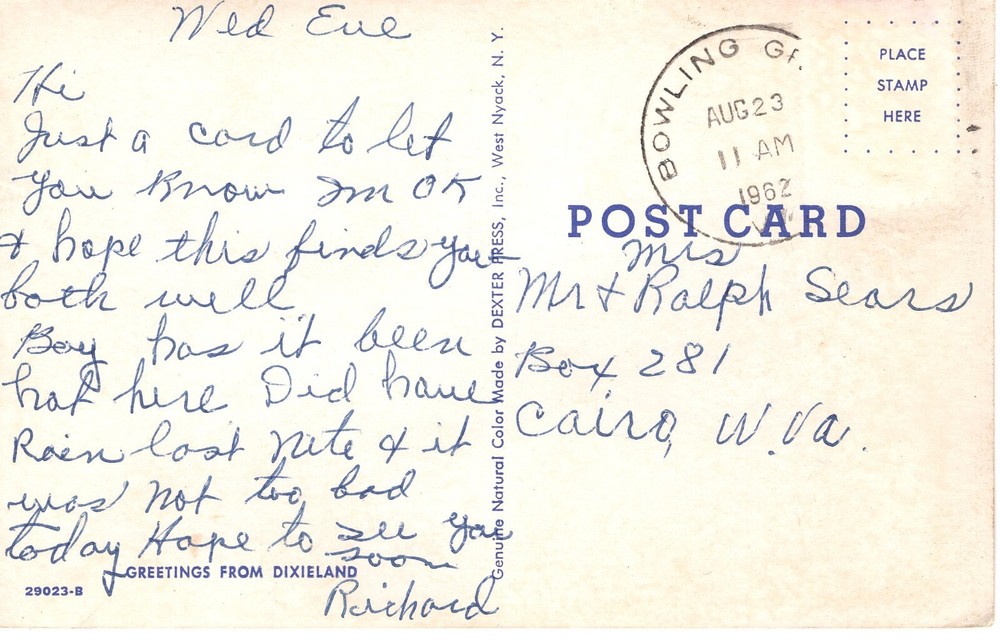 Wed Eve
Hi
Just a card to let
you know Im OK
& hope this finds you
both well
Boy has it been
hot here Did have
Rain last Nite & it
was not too bad
today Hope to see you
soon
Richard
GREETINGS FROM DIXIELAND
29023-B
Genuine Natural Color Made by DEXTER PRESS, Inc., West Nyack, N. Y.
BOWLING GR
AUG 23
11 AM
1962
PLACE
STAMP
HERE
POST CARD
Mrs
Mr & Ralph Sears
Box 281
Cairo, W. Va.